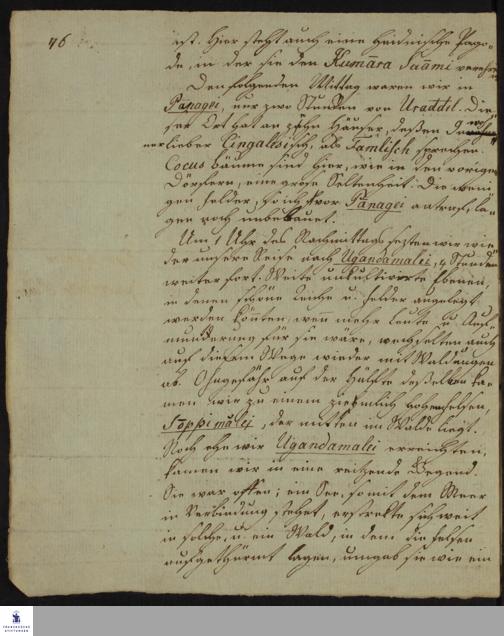 76
ist. Hier steht auch eine heidnische Pago-
de, in der sie den Kumāra Saāmi verehren
Den folgenden Mittag waren wir in
Panagei, nur zwo Stunden von Uraddil. Die-
ser Ort hat an zehn Häuser, deßen
lieber Cingalesisch, als Tamlisch sprechen.
Cocus bäume sind hier, wie in den vorigen
Dörfern, eine große Seltenheit. Die weni-
gen Felder, so ich vor Panagei antraf, la-
gen noch unbebauet.
Um 1 Uhr des Nachmittags sezten wir wie-
der unsere Reise nach Ugandamalei, 4 Stunden
weiter fort. Weite unkultivirte Ebenen,
in denen schöne u. Felder angelegt
werden könten, wenn mehr Leute u. Auf-
munderung für sie wäre, wechselten auch
auf diesem Wege wieder mit Waldungen
ab. Ohngefähr auf der Hälfte deßelben ka-
men wir zu einem ziemlich hohen Felsen,
Toppimalei, der mitten im Walde liegt.
Noch ehe wir Ugandamalei erreichten,
kamen wir in eine reitzende Gegend.
Sie war offen; ein See, so mit dem Meer
in Verbindung stehet, erstrekte sich weit
in solche, u. ein Wald, in dem die Felsen
aufgethürmt lagen, umgab sie wie ein
FRANCKESCHE
STIFTUNGEN